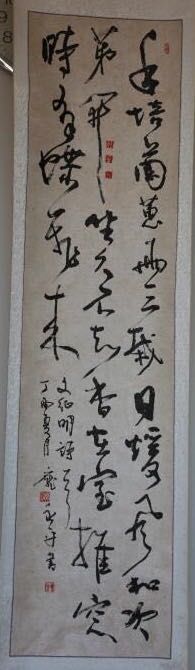 手培蘭蕙兩三載日暖風和次
第開坐久不知香在室推窗
時有蝶飛來
文征明詩
丁酉夏月龐書